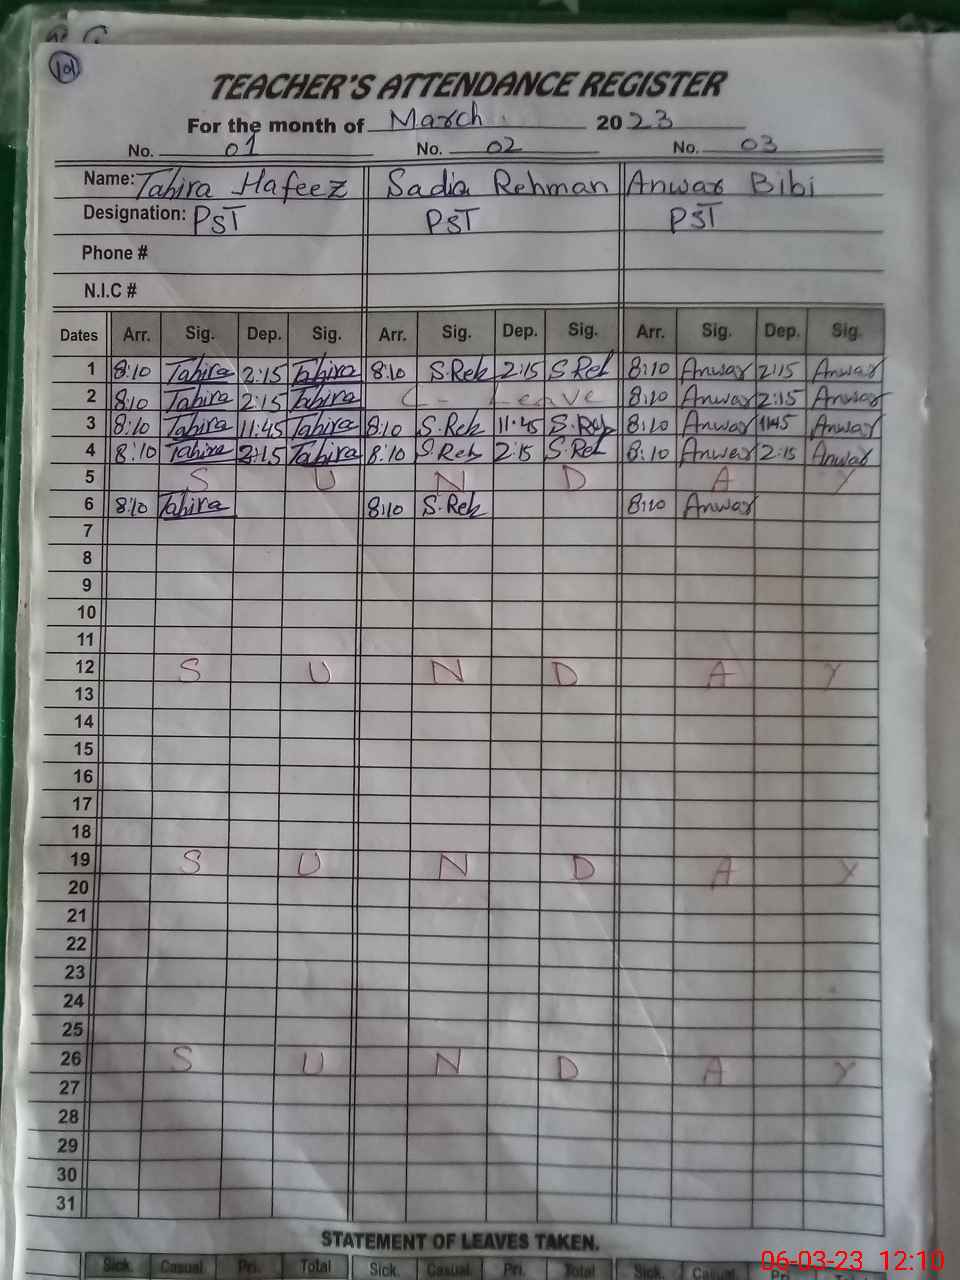 101
TEACHER'S ATTENDANCE REGISTER
For the month of March 2023
No. 01 No. 02 No. 03
Name: Tahira Hafeez Sadia Rehman Anwar Bibi
Designation: PST PST PST
Phone #
N.I.C #
Dates Arr. Sig. Dep. Sig. Arr. Sig. Dep. Sig. Arr. Sig. Dep. Sig.
1 8:10 Tahira 2:15 Tahira 8:10 S.Reh 2:15 S.Reh 8:10 Anwar 2:15 Anwar
2 8:10 Tahira 2:15 Tahira C- Leave 8:10 Anwar 2:15 Anwar
3 8:10 Tahira 11:45 Tahira 8:10 S.Reh 11:45 S.Reh 8:10 Anwar 11:45 Anwar
4 8:10 Tahira 2:15 Tahira 8:10 S.Reh 2:15 S.Reh 8:10 Anwar 2:15 Anwar
5 S U N D A Y
6 8:10 Tahira 8:10 S.Reh 8:10 Anwar
7
8
9
10
11
12 S U N D A Y
13
14
15
16
17
18
19 S U N D A Y
20
21
22
23
24
25
26 S U N D A Y
27
28
29
30
31
STATEMENT OF LEAVES TAKEN.
Sick. Casual Pri. Total Sick. Casual Pri. Total Sick. Casual Pri.
06-03-23 12:10